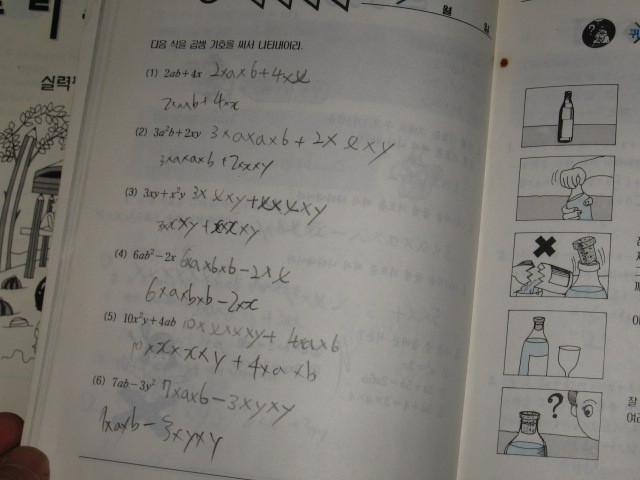 월 일
다음 식을 곱셈 기호를 써서 나타내어라.
실력
(1) 2ab+4x 2×a×b+4×x
2×a×b+4×x
(2) 3a²b+2xy 3×a×a×b+2×x×y
3×a×a×b+2×x×y
(3) 3xy+x²y 3×x×y+x×x×y
3×x×y+x×x×y
(4) 6ab²-2x 6×a×b×b-2×x
6×a×b×b-2×x
(5) 10x²y+4ab 10×x×x×y+4×a×b
10×x×x×y+4×a×b
(6) 7ab-3y² 7×a×b-3×y×y
7×a×b-3×y×y
?
잘